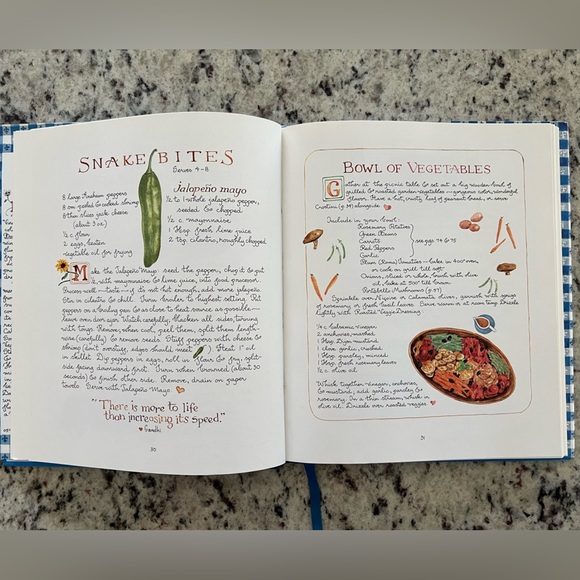 SNAKE BITES
Serves 4-8
8 large Anaheim peppers
8 oz. peeled & cooked shrimp
8 thin slices jack cheese
(about 3 oz.)
½ c. flour
2 eggs, beaten
vegetable oil for frying
Jalapeño mayo
½ to 1 whole jalapeño pepper,
seeded & chopped
½ c. mayonnaise
1 Tbsp. fresh lime juice
2 Tbsp. cilantro, roughly chopped
Make the Jalapeño Mayo: seed the pepper, chop it & put
it, with mayonnaise & lime juice, into food processor.
Process well—taste—if it's not hot enough, add more jalapeño.
Stir in cilantro & chill. Turn broiler to highest setting. Put
peppers on a broiling pan & as close to heat source as possible—
leave oven door ajar. Watch carefully, blacken all sides, turning
with tongs. Remove, when cool, peel them, split them length-
wise (carefully) & remove seeds. Stuff peppers with cheese &
shrimp (don't overstuff, edges should meet). Heat ¼ in. oil
in skillet. Dip peppers in eggs, roll in flour & fry, split-
side facing downward first. Turn when browned, (about 30
seconds) & finish other side. Remove, drain on paper
towels. Serve with Jalapeño Mayo.
"There is more to life
than increasing its speed."
Gandhi
30
BOWL OF VEGETABLES
Gather at the picnic table & set out a big wooden bowl of
grilled & roasted garden vegetables—gorgeous color, wonderful
flavor. Have a hot, crusty loaf of peasant bread, or serve
Crostini (p. 24) alongside.
Include in your bowl:
Rosemary Potatoes
Green Beans
Carrots
Red Peppers
see pgs. 74 & 75
Garlic
Plum (Roma) Tomatoes - bake in 400° oven,
or cook on grill till soft.
Onions, sliced or whole, brush with olive
oil, bake at 300° till brown.
Portobello Mushrooms (p. 87)
Sprinkle over Niçoise or Calamata olives, garnish with sprigs
of rosemary or fresh basil leaves. Serve warm or at room temp. Drizzle
lightly with Roasted Veggie Dressing:
¼ c. balsamic vinegar
2 anchovies, mashed
1 Tbsp. Dijon mustard
1 clove garlic, crushed
1 Tbsp. parsley, minced
1 Tbsp. fresh rosemary leaves
½ c. olive oil
Whisk together vinegar, anchovies,
& mustard; add garlic, parsley &
rosemary. In a thin stream, whisk in
olive oil. Drizzle over roasted veggies.
31